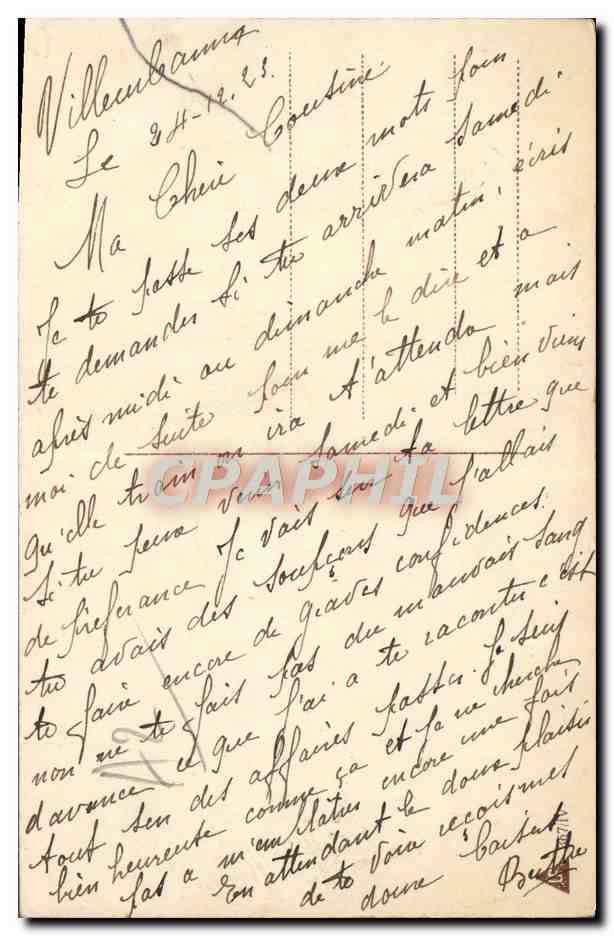 Villeurbanne
Le 24-12.23.
Ma Chère Cousine.
Je te passe ses deux mots pour
te demander si tu arrivera samedi
après midi ou dimanche matin, écris
moi de suite pour me le dire et a
qu'elle tram on ira t'attendre mais
si tu peux venir samedi et bien viens
de préférance Je vais sur ta lettre que
tu avais des soupçons que j'allais
te faire encore de graves confidences.
non ne te fais pas du mauvais sang
d'avance ce que j'ai a te raconter c'est
tout sen des affaires passer. Je suis
bien heureuse comme ça et je ne cherche
pas a m'emballer encore une fois
En attendant le doux plaisir
de te voir recois mes
doux baisers
Berthe
42
CPAPHIL